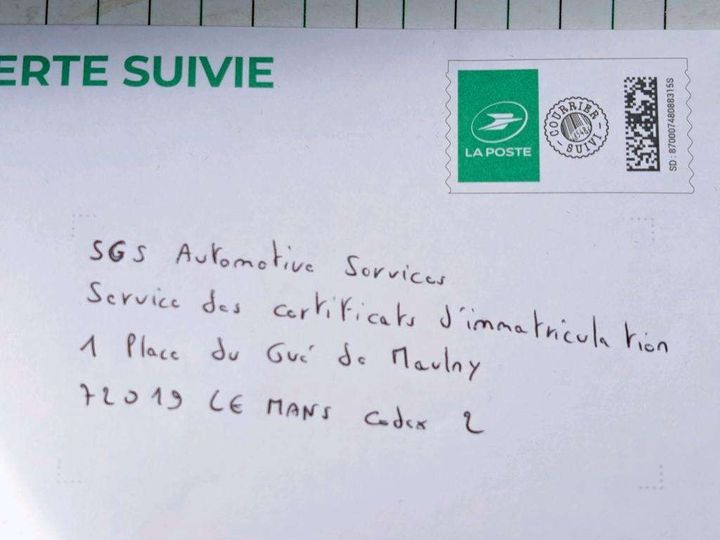 ERTE SUIVIE
LA POSTE
COURRIER
SUIVI
SD : 87000748088315S
SGS Automotive Services
Service des certificats d'immatriculation
1 Place du Gué de Maulny
72019 LE MANS Cedex 2